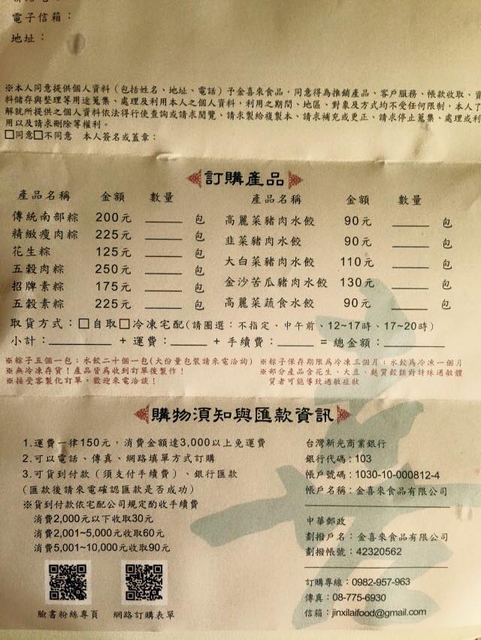 電子信箱：
地址：
※本人同意提供個人資料(包括姓名、地址、電話)予金喜來食品，同意得為推銷產品、客戶服務、帳款收取、資
料儲存與整理等用途蒐集、處理及利用本人之個人資料，利用之期間、地區、對象及方式均不受任何限制，本人了
解就所提供之個人資料依法得行使查詢或請求閱覽、請求製給複製本、請求補充或更正、請求停止蒐集、處理或利
用以及請求刪除等權利。
□同意□不同意 本人簽名或蓋章：
訂購產品
產品名稱 金額 數量 產品名稱 金額 數量
傳統南部粽 200元 包 高麗菜豬肉水餃 90元 包
精緻瘦肉粽 225元 包 韭菜豬肉水餃 90元 包
花生粽 125元 包 大白菜豬肉水餃 110元 包
五穀肉粽 250元 包 金沙苦瓜豬肉水餃 130元 包
招牌素粽 175元 包 高麗菜蔬食水餃 90元 包
五穀素粽 225元 包
取貨方式：□自取□冷凍宅配(請圈選：不指定、中午前、12~17時、17~20時)
小計： + 運費： + 手續費： = 總金額：
※粽子五個一包；水餃二十個一包(大份量包裝請來電洽詢)
※無冷凍存貨！產品皆為收到訂單後製作！
※接受客製化訂單，歡迎來電洽談！
※粽子保存期限為冷凍三個月；水餃為冷凍一個月
※部分產品含花生、大豆、麩質穀類對特殊過敏體
質者可能導致過敏症狀
購物須知與匯款資訊
1.運費一律150元，消費金額達3,000以上免運費
2.可以電話、傳真、網路填單方式訂購
3.可貨到付款(須支付手續費)、銀行匯款
(匯款後請來電確認匯款是否成功)
※貨到付款依宅配公司規定酌收手續費
消費2,000元以下收取30元
消費2,001~5,000元收取60元
消費5,001~10,000元收取90元
臉書粉絲專頁 網路訂購表單
台灣新光商業銀行
銀行代碼：103
帳戶號碼：1030-10-000812-4
帳戶名稱：金喜來食品有限公司
中華郵政
劃撥戶名：金喜來食品有限公司
劃撥帳號：42320562
訂購專線：0982-957-963
傳真：08-775-6930
信箱：jinxilaifood@gmail.com